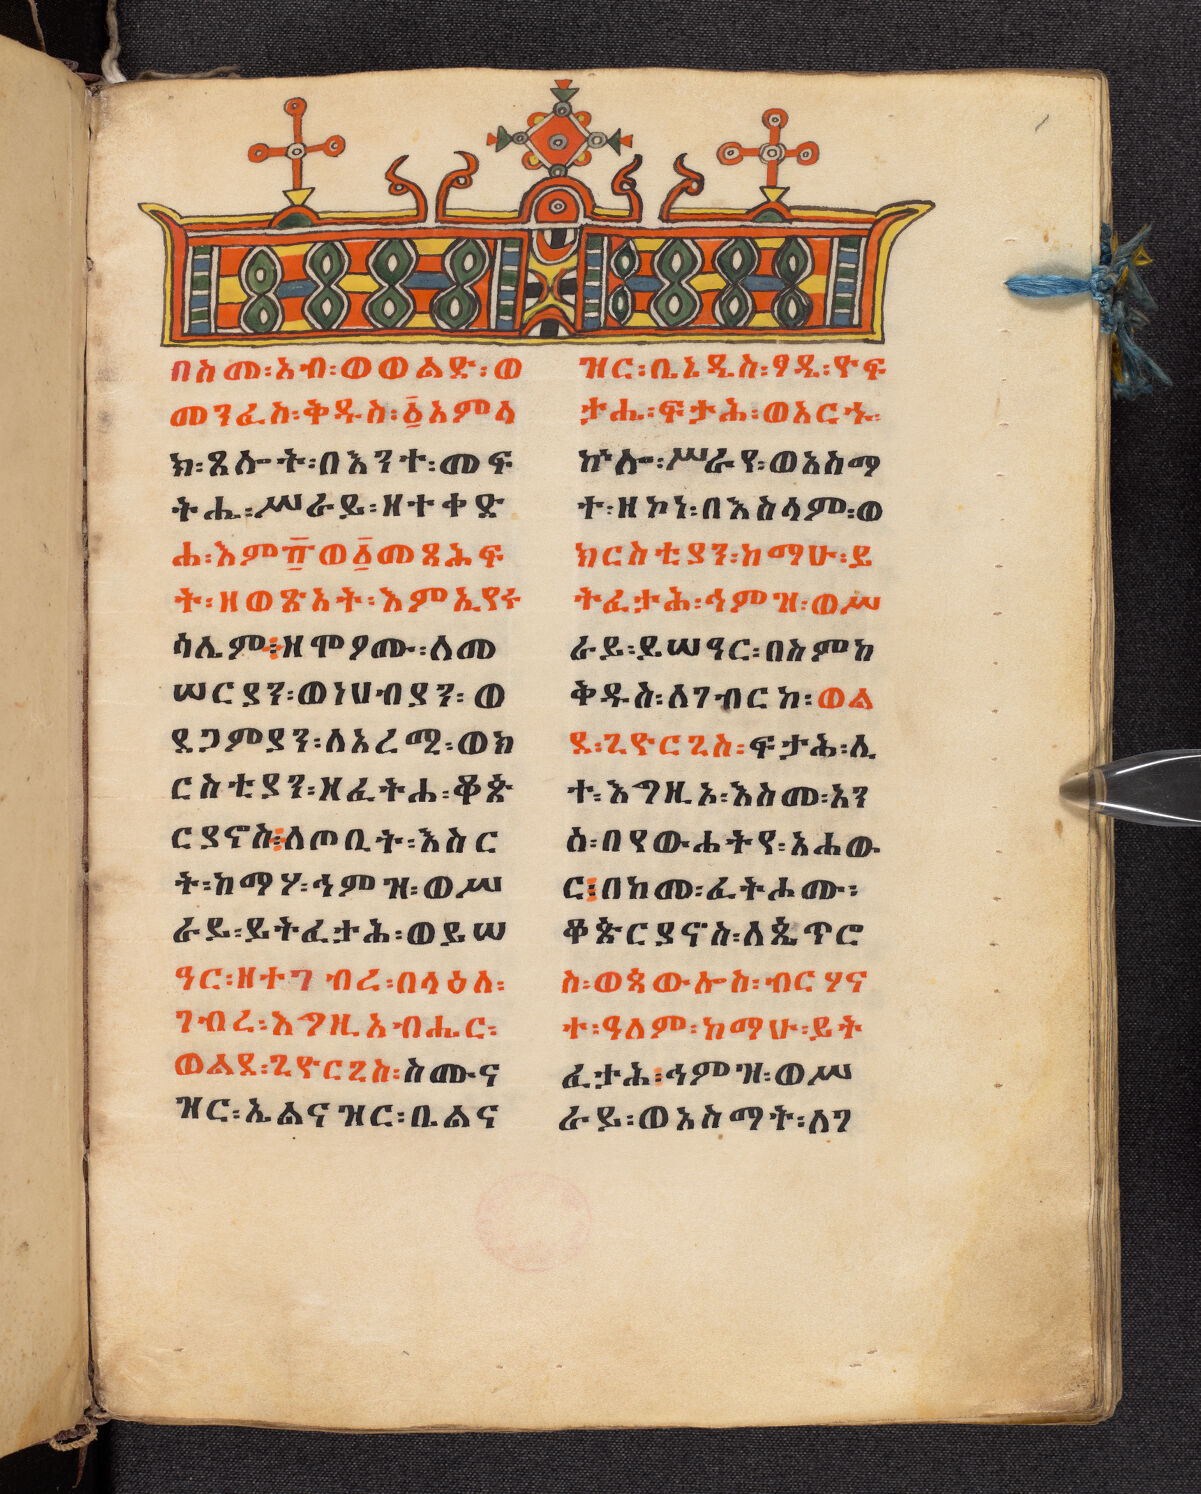 በስመ፡አብ፡ወወልድ፡ወ
መንፈስ፡ቅዱስ፡፩አምላ
ክ፡ጸሎት፡በእንተ፡መፍ
ትሔ፡ሥራይ፡ዘተቀድ
ሐ፡እም፲ወ፩መጻሕፍ
ት፡ዘወጽአት፡እምኢየሩ
ሳሌም፡ዘሞዖሙ፡ለመ
ሠርያን፡ወነሀብያን፡ወ
ደጋምያን፡ለአረሚ፡ወክ
ርስቲያን፡ዘፈትሐ፡ቆጵ
ርያኖስ፡ለጦቢት፡እስር
ት፡ከማሃ፡ኅምዝ፡ወሥ
ራይ፡ይትፈታሕ፡ወይሠ
ዓር፡ዘተገብረ፡በላዕለ፡
ገብረ፡እግዚአብሔር፡
ወልደ፡ጊዮርጊስ፡ስሙና
ዝር፡ኤልናዝር፡ቢልና
ዝር፡ቤኔዲስ፡ዓዲ፡ዮፍ
ታሔ፡ፍታሕ፡ወአርኁ፡
ኵሎ፡ሥራየ፡ወአስማ
ተ፡ዘኮነ፡በእስላም፡ወ
ክርስቲያን፡ከማሁ፡ይ
ትፈታሕ፡ኅምዝ፡ወሥ
ራይ፡ይሠዓር፡በስምከ
ቅዱስ፡ለገብርከ፡ወል
ደ፡ጊዮርጊስ፡ፍታሕ፡ሊ
ተ፡እግዚኦ፡እስመ፡አን
ሰ፡በየውሐትየ፡አሐው
ር፡በከመ፡ፈትሖሙ፡
ቆጵርያኖስ፡ለጴጥሮ
ስ፡ወጳውሎስ፡ብርሃና
ተ፡ዓለም፡ከማሁ፡ይት
ፈታሕ፡ኅምዝ፡ወሥ
ራይ፡ወአስማት፡ለገ